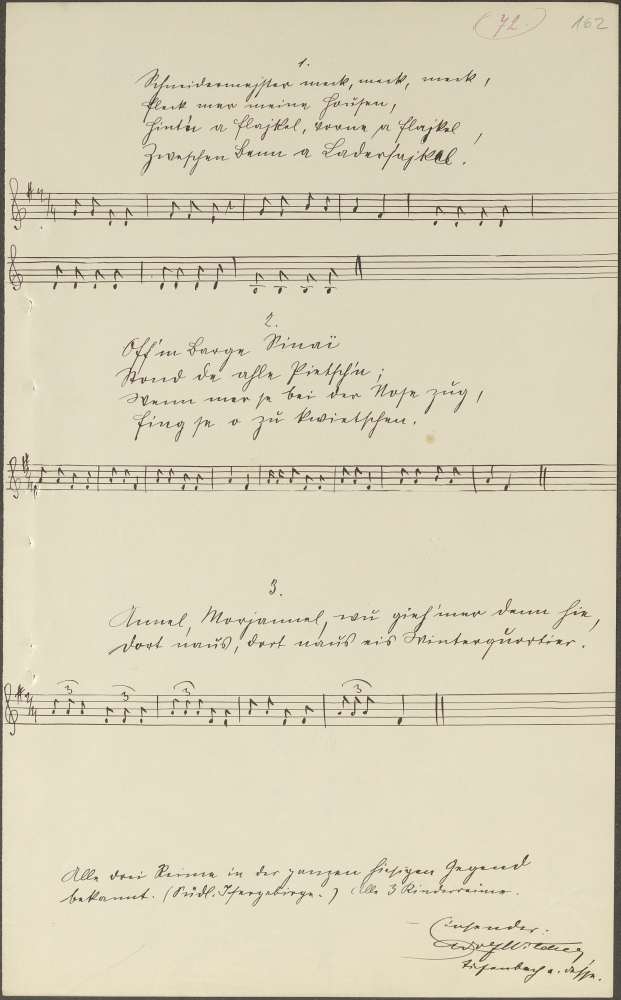 (72.) 162
1.
Schneidermejster meck, meck, meck,
Fleck mer meine Housen,
Hint'n a Flajkel, vorne a Flajkel,
Zweschen Benn a Ladersajkel.
2.
Off'm Barge Sinaï
Stond de ahle Pietsch'n;
Wenn mer se bei der Nose zug,
Fing se o zu kwietschen.
3.
Annel, Morjannel, wu gieh'mer denn hie,
Dort naus, dort naus eis Winterquortier.
3 3 3 3
Alle drei Reime in der ganzen hiesigen Gegend
bekannt. (Südl. Isergebirge.) Alle 3 Kinderreime.
Einsender:
Tiefenbach a. Desse.